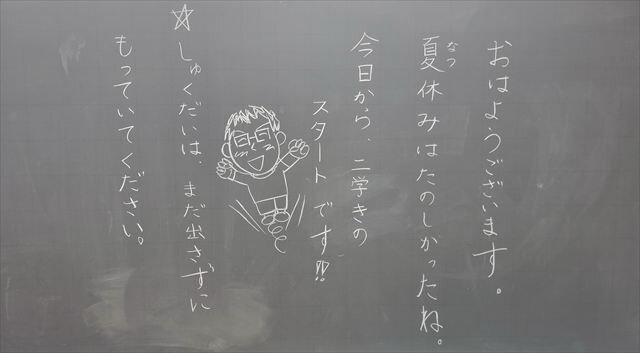 おはようございます。
夏休みはたのしかったね。
なつ
今日から、二学きの
スタートです!!
☆しゅくだいは、まだ出さずに
もっていてください。